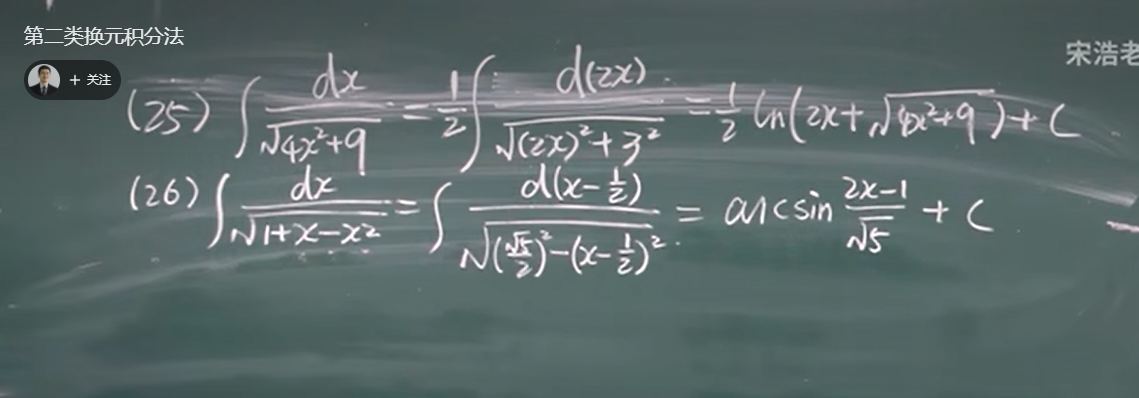 第二类换元积分法
+ 关注
宋浩老
(25) ∫ dx/√(4x²+9) = 1/2 ∫ d(2x)/√((2x)²+3²) = 1/2 ln(2x+√(4x²+9))+C
(26) ∫ dx/√(1+x-x²) = ∫ d(x-1/2)/√((√5/2)²-(x-1/2)²) = arcsin (2x-1)/√5 + C